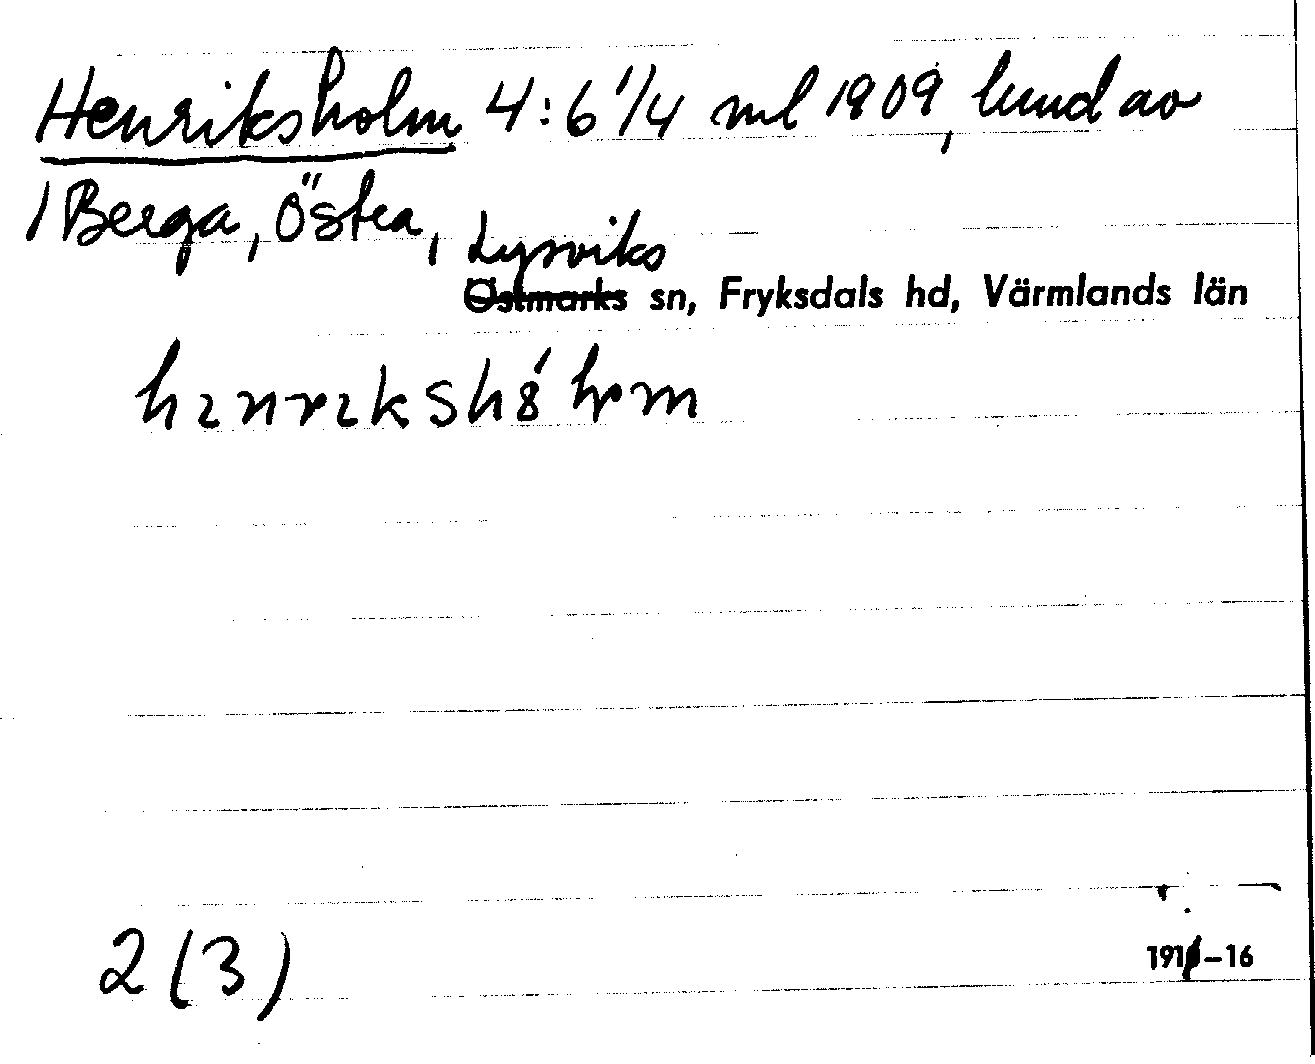 Henriksholm 4:6 1/4 ml 1909, lund av
/ Berga, Östra, Lysviks
Östmarks sn, Fryksdals hd, Värmlands län
2 (3)
-16